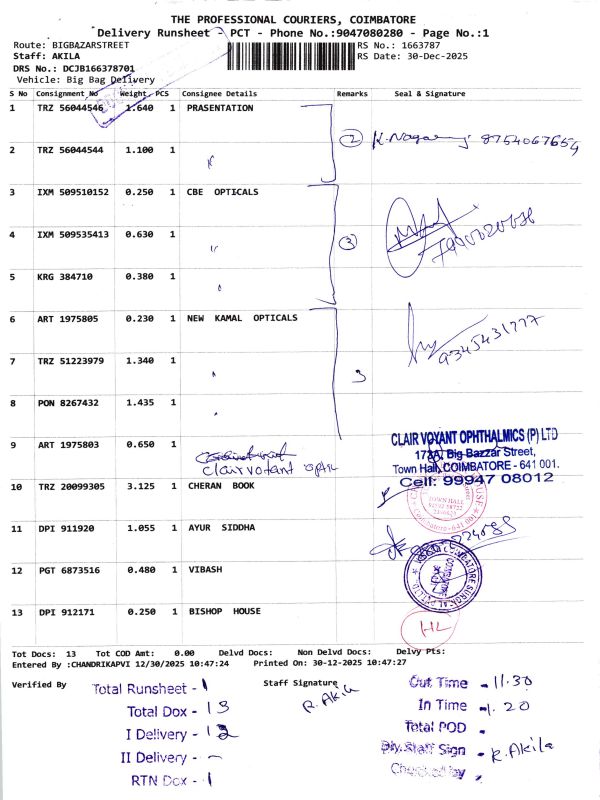 THE PROFESSIONAL COURIERS, COIMBATORE
Delivery Runsheet - PCT - Phone No.:9047080280 - Page No.:1
Route: BIGBAZARSTREET RS No.: 1663787
Staff: AKILA RS Date: 30-Dec-2025
DRS No.: DCJB166378701
Vehicle: Big Bag Delivery
S No Consignment No Weight PCS Consignee Details Remarks Seal & Signature
1 TRZ 56044546 1.640 1 PRASENTATION
2 K. 8754067654
2 TRZ 56044544 1.100 1 "
3 IXM 509510152 0.250 1 CBE OPTICALS
4 IXM 509535413 0.630 1 " 3
5 KRG 384710 0.380 1 "
6 ART 1975805 0.230 1 NEW KAMAL OPTICALS
9345431777
7 TRZ 51223979 1.340 1 " 3
8 PON 8267432 1.435 1 "
CLAIR VOYANT OPHTHALMICS (P) LTD
9 ART 1975803 0.650 1 clairvotant
173A, Big Bazzar Street,
Town Hall, COIMBATORE - 641 001.
Cell: 99947 08012
10 TRZ 20099305 3.125 1 CHERAN BOOK
TOWN HALL
11 DPI 911920 1.055 1 AYUR SIDDHA
12 PGT 6873516 0.480 1 VIBASH
COIMBATORE SURGICAL
13 DPI 912171 0.250 1 BISHOP HOUSE
HL
Tot Docs: 13 Tot COD Amt: 0.00 Delvd Docs: Non Delvd Docs: Delvy Pts:
Entered By :CHANDRIKAPVI 12/30/2025 10:47:24 Printed On: 30-12-2025 10:47:27
Verified By Staff Signature
R. Akila
Total Runsheet - 1
Total Dox - 13
I Delivery - 12
II Delivery - -
RTN Dox - 1
Out Time - 11.30
In Time - 1.20
Total POD -
Dly.Staff Sign - R. Akila
Checked by